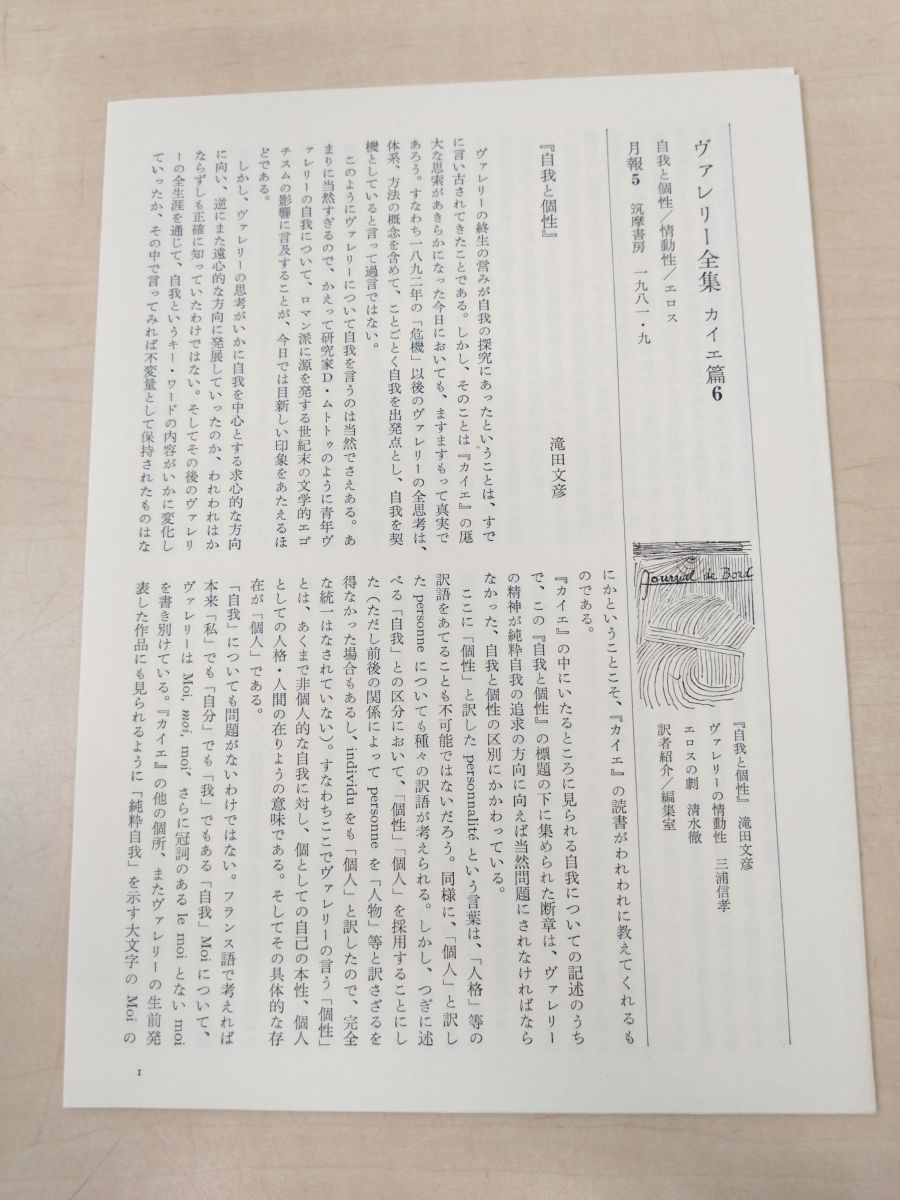 ヴァレリー全集 カイエ篇6
自我と個性/情動性/エロス
月報5 筑摩書房 一九八一・九
Journal de Bord
『自我と個性』 滝田文彦
ヴァレリーの情動性 三浦信孝
エロスの劇 清水徹
訳者紹介/編集室
『自我と個性』
滝田文彦
ヴァレリーの終生の営みが自我の探究にあったということは、すで
に言い古されてきたことである。しかし、そのことは『カイエ』の厖
大な思索があきらかになった今日においても、ますますもって真実で
あろう。すなわち一八九二年の「危機」以後のヴァレリーの全思考は、
体系、方法の概念を含めて、ことごとく自我を出発点とし、自我を契
機としていると言って過言ではない。
このようにヴァレリーについて自我を言うのは当然でさえある。あ
まりに当然すぎるので、かえって研究家D・ムトトゥのように青年ヴ
ァレリーの自我について、ロマン派に源を発する世紀末の文学的エゴ
チスムの影響に言及することが、今日では目新しい印象をあたえるほ
どである。
しかし、ヴァレリーの思考がいかに自我を中心とする求心的な方向
に向い、逆にまた遠心的な方向に発展していったのか、われわれはか
ならずしも正確に知っていたわけではない。そしてその後のヴァレリ
ーの全生涯を通じて、自我というキー・ワードの内容がいかに変化し
ていったか、その中で言ってみれば不変量として保持されたものはな
にかということこそ、『カイエ』の読書がわれわれに教えてくれるも
のである。
『カイエ』の中にいたるところに見られる自我についての記述のうち
で、この『自我と個性』の標題の下に集められた断章は、ヴァレリー
の精神が純粋自我の追求の方向に向えば当然問題にされなければなら
なかった、自我と個性の区別にかかわっている。
ここに「個性」と訳した personnalité という言葉は、「人格」等の
訳語をあてることも不可能ではないだろう。同様に、「個人」と訳し
た personne についても種々の訳語が考えられる。しかし、つぎに述
べる「自我」との区分において、「個性」「個人」を採用することにし
た(ただし前後の関係によって personne を「人物」等と訳さざるを
得なかった場合もあるし、individu をも「個人」と訳したので、完全
な統一はなされていない)。すなわちここでヴァレリーの言う「個性」
とは、あくまで非個人的な自我に対し、個としての自己の本性、個人
としての人格・人間の在りようの意味である。そしてその具体的な存
在が「個人」である。
「自我」についても問題がないわけではない。フランス語で考えれば
本来「私」でも「自分」でも「我」でもある「自我」Moi について、
ヴァレリーは Moi, moi, moi、さらに冠詞のある le moi とない moi
を書き別けている。『カイエ』の他の個所、またヴァレリーの生前発
表した作品にも見られるように「純粋自我」を示す大文字の Moi の
1